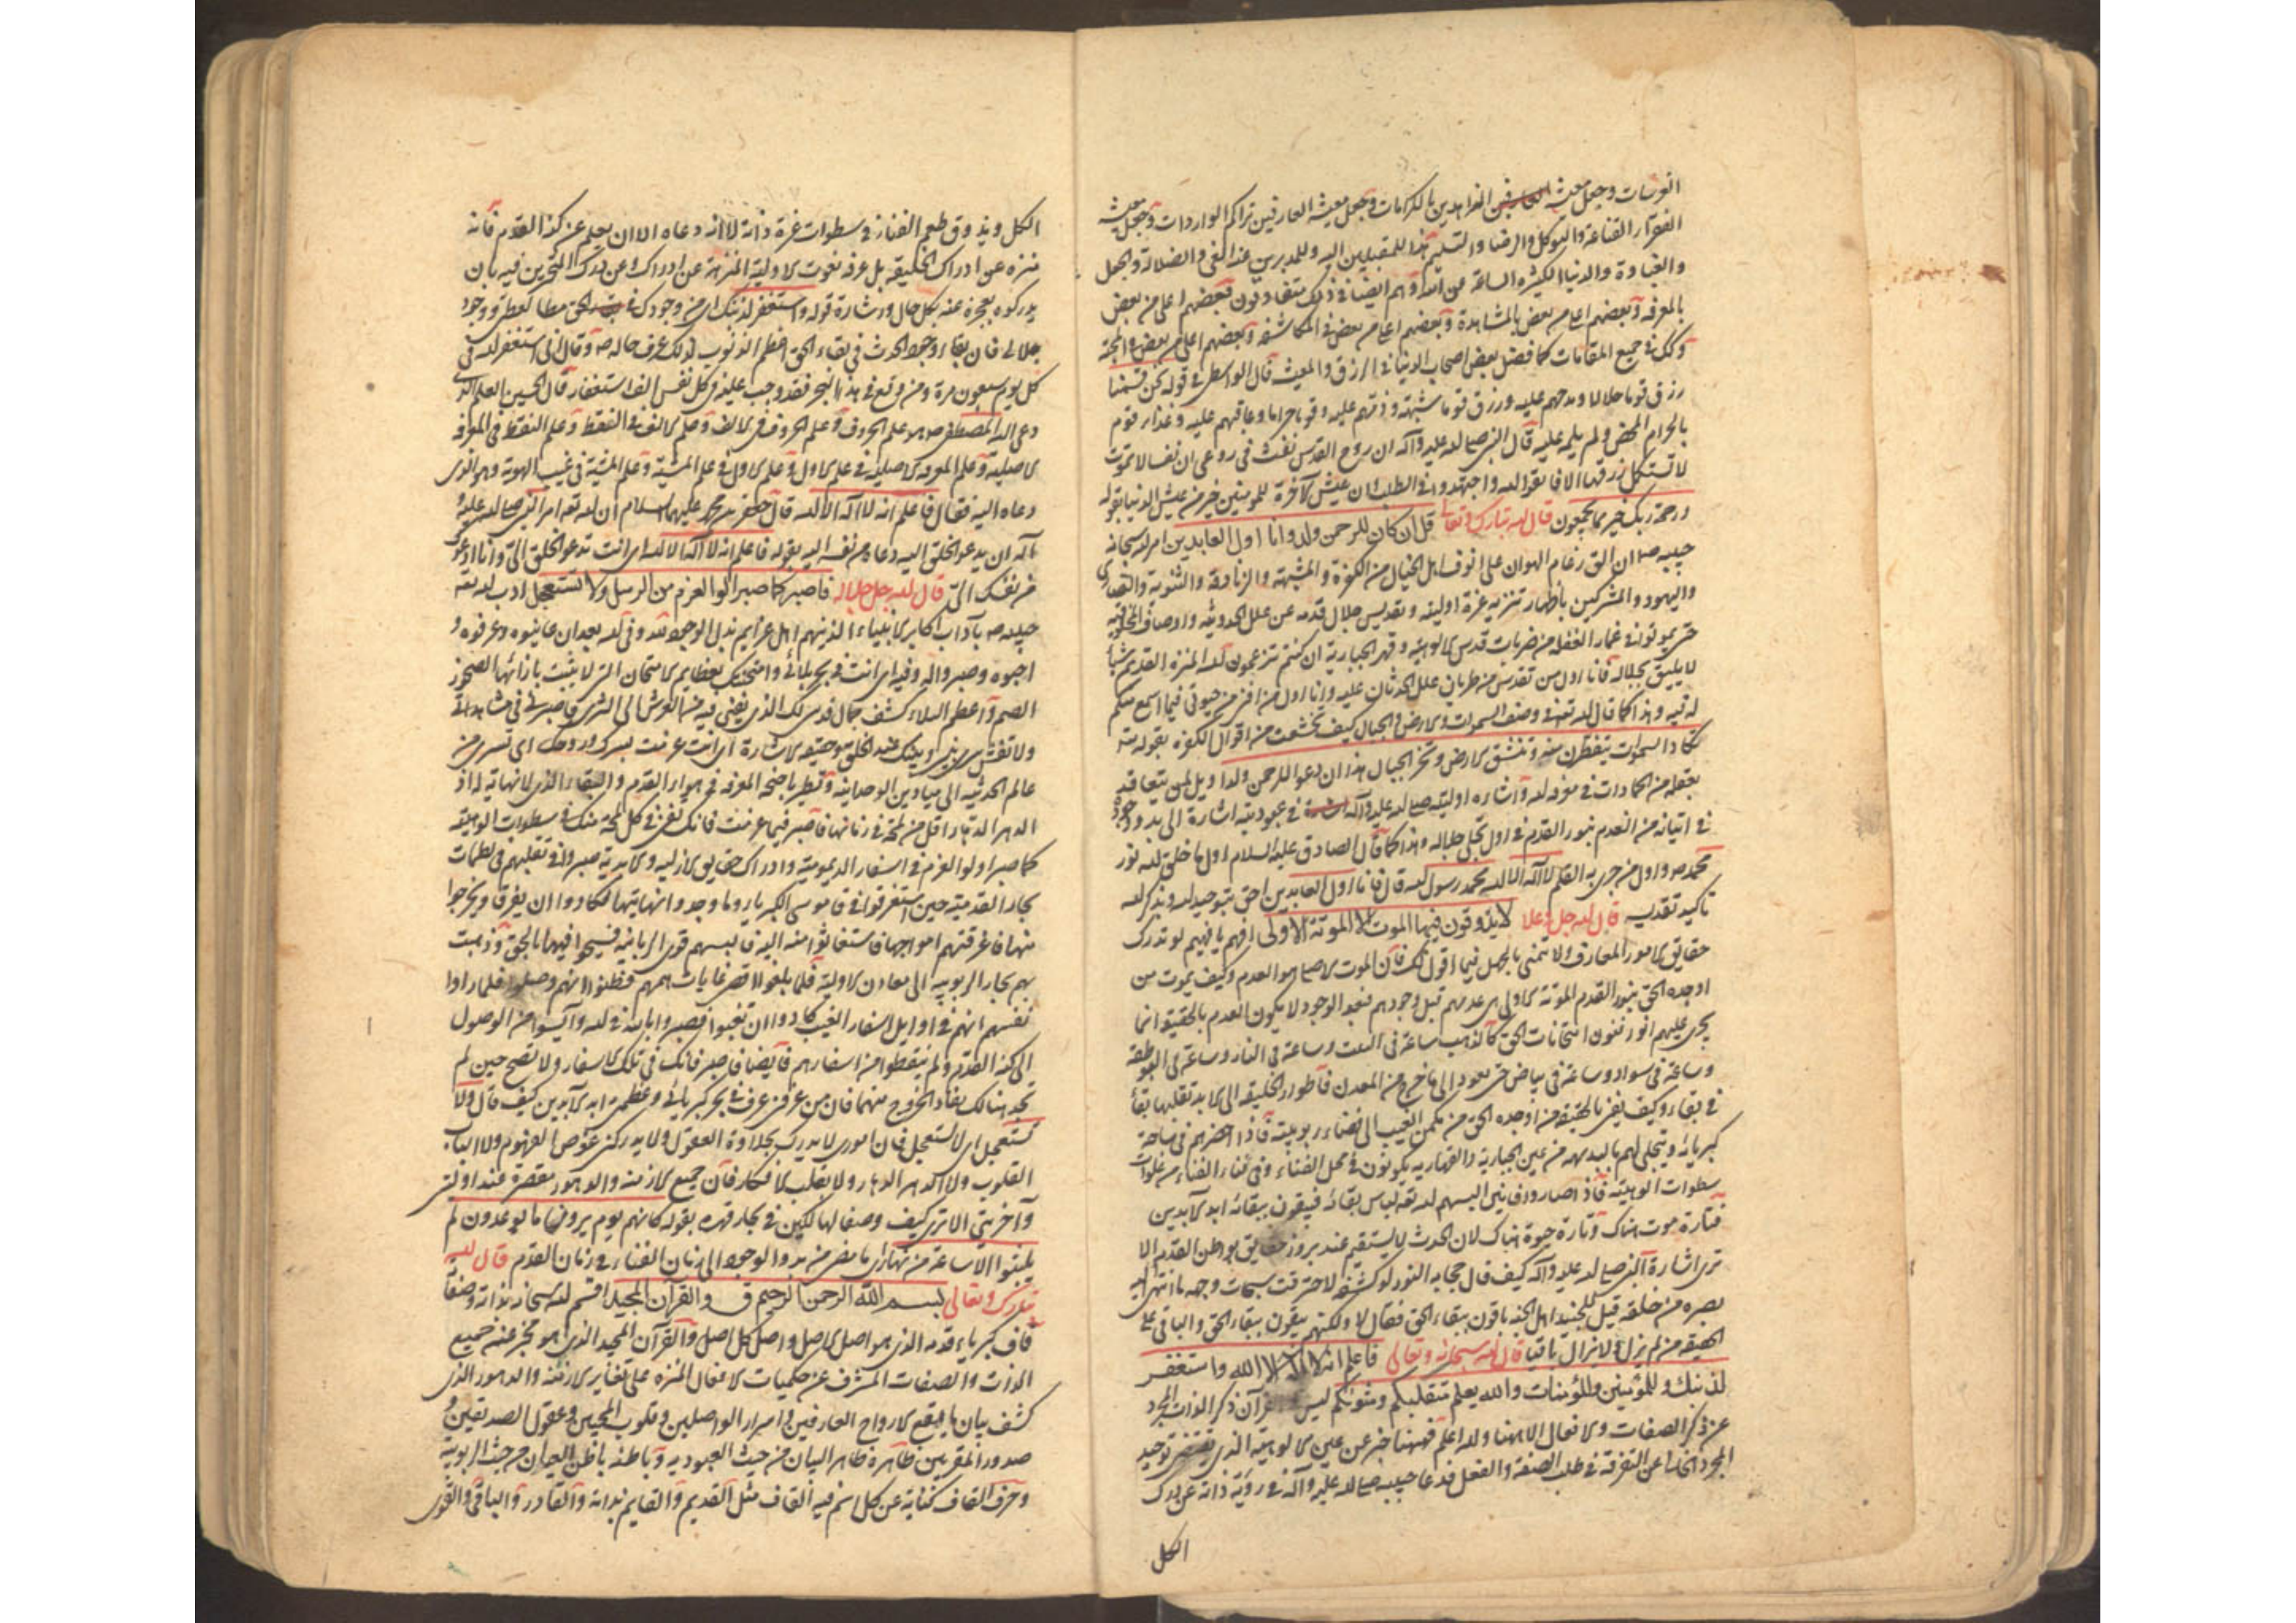 وجعل معيشة الزاهدين بالكرامات وجعل معيشة العارفين تراكم الواردات وجعل معيشة
الفقرآء القناعة والتوكل والرضا والتسليم هذا للمقبلين اليه وللمدبرين عنه الغي والضلالة والجهل
والغباوة والدنيا الكثيرة عن الله وهم ايضا في ذلك متفاوتون فبعضهم اعلى من بعض
بالمعرفة وبعضهم اعلى من بعض بالمشاهدة وبعضهم اعلى من بعض في المكاشفة وبعضهم اعلى من بعض في المحبة
وكك في جميع المقامات كما فضل بعض اصحاب الدنيا في الرزق والمعيشة قال الواسطى في قوله نحن قسمنا
رزق قوما حلالا ومدحهم عليه ورزق قوما شبهة وذمهم عليه وقوما حراما وعاقبهم عليه وغذاء قوم
بالحرام المحض ولم عليه قال النبي صلى الله عليه وآله ان روح القدس نفث في روعى ان نفسا لا تموت
لا تستكمل رزقها الا فاتقوا الله واجملوا في الطلب ان عيش الآخرة للمؤمنين خير من عيش الدنيا بقوله
ورحمة ربك خير مما يجمعون قال الله تبارك وتعالى قل ان كان للرحمن ولد وانا اول العابدين امر الله سبحانه
حبيبه ص ان الق رغام الهوان على انوف اهل الخيال من الكفرة والمشبهة والزنادقة والثنوية والنصارى
واليهود والمشركين بأظهار تنزيه عزة اوليته وتقديس جلال قدمه عن علل الحدوثية واوصاف الخلقية
حتى يموتوا في غمار الغفلة من ضربات قدس الالوهية وقهر الجبارية ان كنتم تزعمون لله المنزه القديم شيأ
لا يليق بجلاله فانا اول من تقدس من طريان علل الحدثان عليه وانا اول من حيوتى فيما اسمع منكم
وهذا كما قال الله تعه في وصف السموات والارض والجبال كيف تخشعت من اقوال الكفرة بقوله تعه
تكاد السموات يتفطرن منه وتنشق الارض وتخر الجبال هدا ان دعوا للرحمن ولدا ويل لمن
في معرفة الله واشاره اوليته صلى الله عليه وآله في عبوديته اشارة الى بدو وجوده
في اتيانه من العدم بنور القدم في اول تجلى جلاله وهذا كما قال الصادق عليه السلام اول ما خلق الله نور
محمد ص واول من جرى به القلم لا اله الا الله محمد رسول الله قال فانا اول العابدين احق بتوحيد الله وذكر الله
قال الله جل وعلا لا يذوقون فيها الموت الا الموتة الاولى افهم يا فهيم لو تدرك
حقايق الامور المعارف ولا بالجهل فيما اقول لك فان الموت الاصلى هو العدم وكيف يموت من
اوجده الحق بنور القدم الموتة الاولى عدمهم قبل وجودهم فبعد الوجود لا يكون العدم بالحقيقة انما
يجرى عليهم امتحانات الحق كالذهب ساعة في وساعة في النار وساعة في
وساعة في سواد وساعة في بياض حتى يعود الى ما خرج من المعدن فاطوار الخليقة الى الابد تقلبها بقاء
في بقاء وكيف يفنى بالحقيقة من اوجده الحق من مكمن الغيب الى فضاء ربوبيته فاذا احضرهم في ساحة
كبريائه ويتجلى لهم من عين الجبارية والقهارية يكونون في محل الفناء وفي فناء الفناء من
سطوات الوهيته فاذا صاروا فانين البسهم الله تعه لباس بقائه فيبقون ببقائه ابد الآبدين
فتارة موت هناك وتارة حيوة هناك لان الحدث لا يستقيم عند بروز حقايق بواطن القدم الا
ترى اشارة النبي صلى الله عليه وآله كيف قال حجابه النور لو كشفه لاحترقت سبحات وجهه ما انتهى اليه
بصره من خلقه قيل للجنيد اهل الجنة باقون ببقاء الحق فقال لا ولكنهم يبقون ببقاء الحق والباقى على
الحقيقة من لم يزل ولا يزال باقيا قال الله سبحانه وتعالى فاعلم انه لا اله الا الله واستغفر
لذنبك وللمؤمنين والمؤمنات والله يعلم متقلبكم ومثويكم ليس القرآن ذكر الذات المجرد
عن ذكر الصفات والافعال الا ههنا والله اعلم فههنا خبر عن عين الالوهية الذى يقتضى توحيد
المجرد عن التفرقة في طلب الصفة والفعل فدعا حبيبه صلى الله عليه وآله في رؤية ذاته عن درك
الكل
الكل ويذوق طعم الفناء في سطوات عزة ذاته لا انه دعاه الا ان يعلم عن كنه القدم فانه
منزه عن ادراك الخليقة بل عرفه نعوت الاولية المنزهة عن ادراك المتحيرين فيه بان
يدركوه بعجزه عنه بكل حال واشارة قوله واستغفر لذنبك اى من وجودك في الحق وجود
جلالى فان بقاء وجود الحدث في بقاء الحق اعظم الذنوب لذلك عرف حاله ص وقال انى استغفر الله في
كل يوم سبعون مرة ومن وقع في هذا البحر فقد وجب عليه في كل نفس الف استغفار قال الحسين العلم الذى
دعى اليه المصطفى ص هو علم الحروف وعلم الحروف في الالف وعلم الالف في النقطة وعلم النقطة في المعرفة
الاصلية وعلم المعرفة الاصلية في علم الاول وعلم الاول في علم المشية وعلم المشية في غيب الهوية وهو الذى
دعاه اليه فقال فاعلم انه لا اله الا الله قال جعفر بن محمد عليهما السلام ان الله تعه امر النبي صلى الله عليه و
آله ان يدعو الخلق اليه دعاه من نفسه اليه بقوله فاعلم انه لا اله الا الله اى انت تدعو الخلق الى وانا ادعوك
من نفسك الى قال الله جل جلاله فاصبر كما صبر اولوا العزم من الرسل ولا تستعجل ادب الله تعه
حبيبه ص بآداب اكابر الانبياء الذينهم اهل عزايم بذل الوجود لله وفي الله بعد ان عاينوه وعرفوه و
احبوه وصبروا له وفيه اى انت في بحر بلائى وامتحنك بعظايم الامتحان التى لا يثبت بازائها الصخور
الصم واعظم البلاء كشف جمال قدسى لك الذى يفنى فيه من العرش الى الثرى فاصبر في مشاهدتى
ولا تفش سرى بينى وبينك عند الخلق وحقيقة الاشارة اى انت عرفت بسرك وروحك اى تسرى من
عالم الحدثية الى ميادين الوحدانية وتطير باجنحة المعرفة في هواء القدم والبقاء الذى لا نهاية له اذ
الدهر الدهار اقل من لمحة في زمانها فاصبر فيما عرفت فانك تفنى في كل لمحة منك في سطوات الوهيته
كما صبر اولوا العزم في اسفار الديمومية وادراك حقايق الازلية والابدية صبروا في تقلبهم في لطمات
بحار القدمية حين استغرقوا في قاموس الكبرياء وما وجدوا نهايتها فكادوا ان يغرقوا ويخرجوا
منها فاغرقتهم امواجها فاستغاثوا منه اليه فالبسهم قوى الربانية فسبحوا فيها بالحق وذهبت
بهم بحار الربوبية الى معادن الاولية فلما بلغوا اقصى غايات هممهم فظنوا انهم وصلوا فلما راوا
نفسهم انهم في اوايل اسفار الغيب كادوا ان يغيبوا فصبروا بالله في الله وآيسوا من الوصول
الى كنه القدم ولم ينقطعوا من اسفارهم فايضا فاصبر فانك في تلك الاسفار ولا تصح حين لم
تجد هنالك نفاد الخروج منهما فان من عرفنى عرف في بحر كبريائى وعظمتى ابد الآبدين كيف قال ولا
تستعجل اى لا تستعجل فان امورى لا يدرك بجلادة العقول ولا يدركنى غوص الفهوم ولا
القلوب ولا الدهر الدهار ولا بقلب الافكار فان جميع الازمنة والدهور مقصرة عند اوليتى
وآخريتى الا ترى كيف وصف الهالكين في بحار قهره بقوله كانهم يوم يرون ما يوعدون لم
يلبثوا الا ساعة من نهار اى ما مضى من بدو الوجود الى زمان الفناء في زمان القدم قال الله
تبارك وتعالى بسم الله الرحمن الرحيم ق والقرآن المجيد اقسم الله سبحانه بذاته وصفاته
قاف كبرياء قدمه الذى هو اصل الاصل واصل كل اصل والقرآن المجيد الذى هو مخبر عنه جميع
الذات والصفات المشرف عن حكميات الافعال المنزه على تغاير الازمنة والدهور الذى
كشف بيان ما يقع لارواح العارفين واسرار الواصلين وقلوب المحبين وعقول الصديقين و
صدور المقربين ظاهره ظاهر البيان من حيث العبودية وباطنه باطن العيان من حيث الربوبية
وحرف القاف كناية عن كل اسم فيه القاف مثل القديم والقايم بذاته والقادر والباقى والقوى